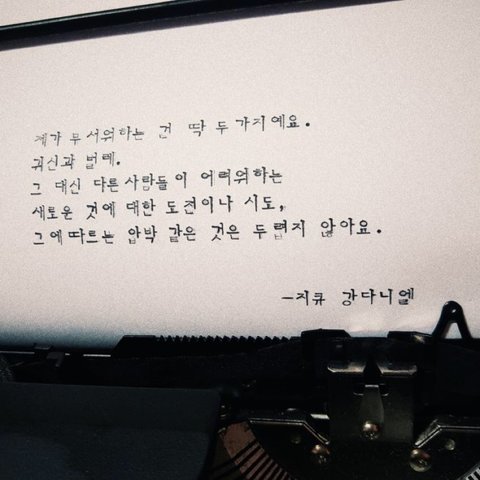 제가 무서워하는 건 딱 두 가지예요.
귀신과 벌레.
그 대신 다른 사람들이 어려워하는
새로운 것에 대한 도전이나 시도,
그에 따르는 압박 같은 것은 두렵지 않아요.
-지큐 강다니엘